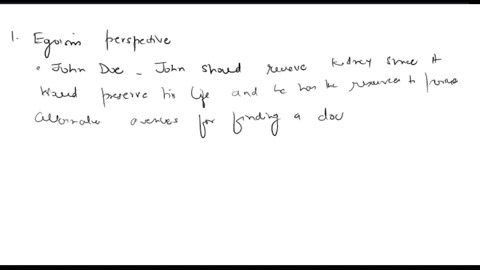 1. Egoism perspective
• John Doe - John should receive kidney since it
would preserve his life and he has the resources to pursue
alternative avenues for finding a doc